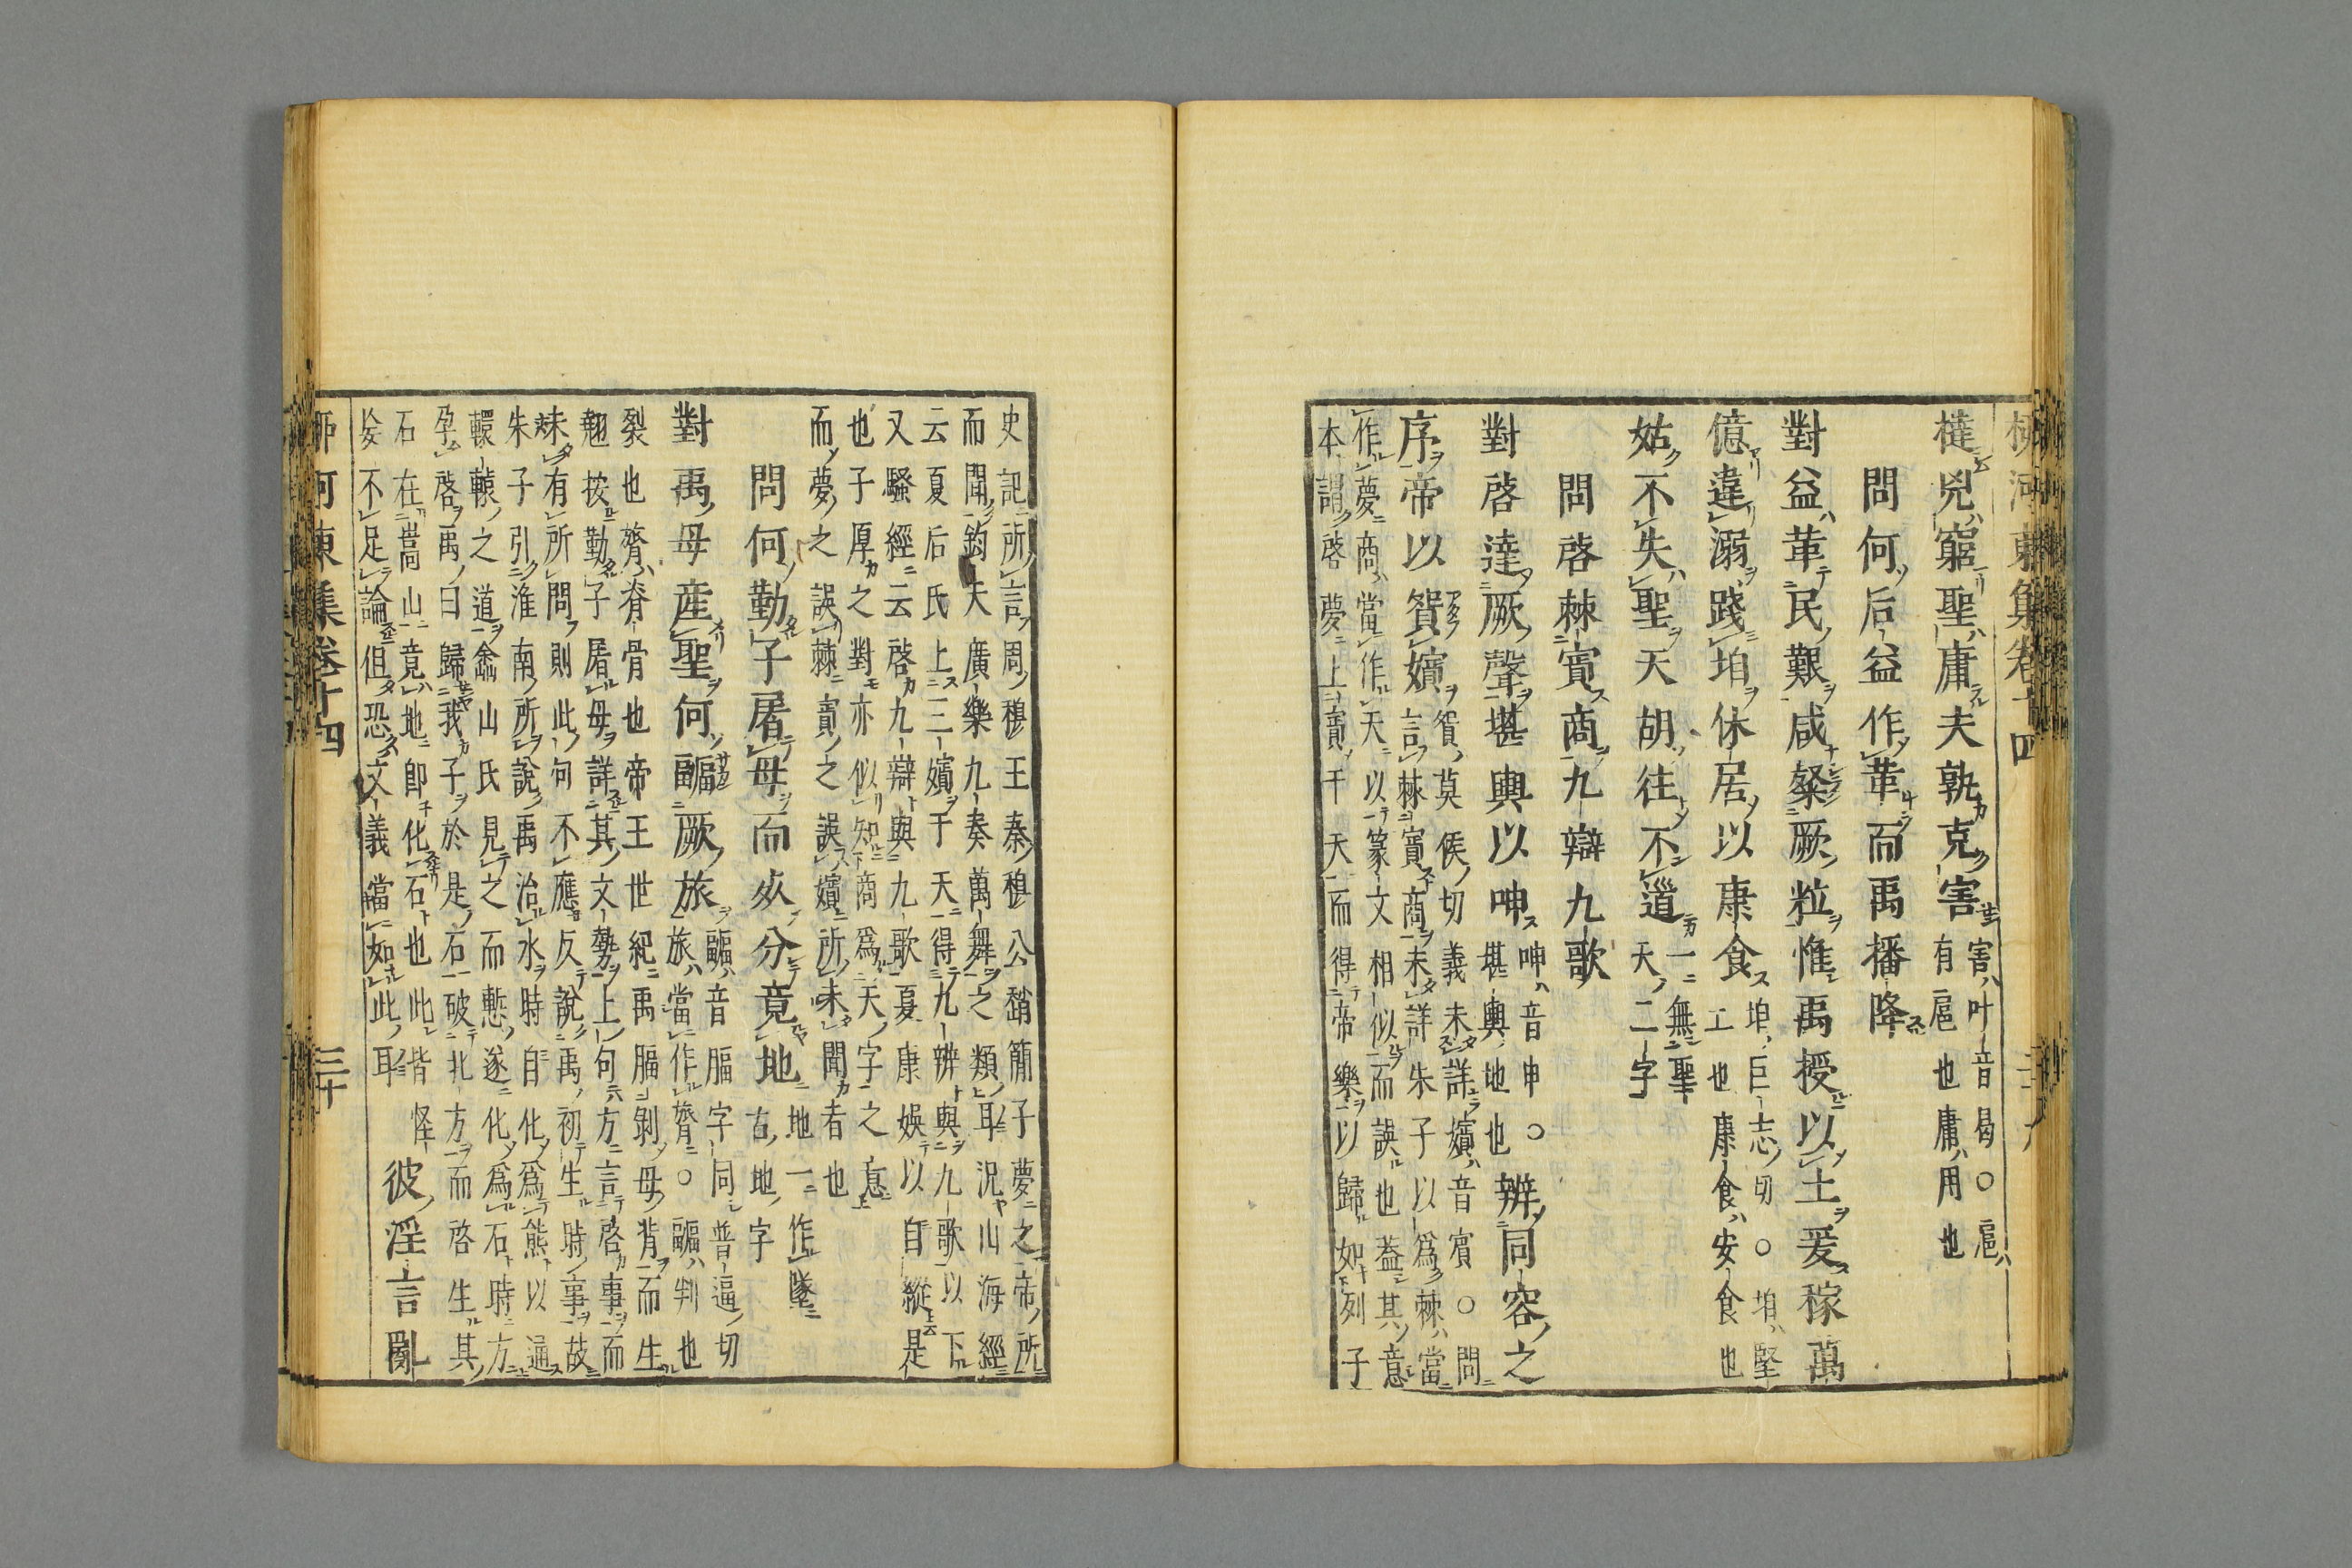 柳河東集卷十四
㨖兇窮聖庸夫孰克害
害叶音曷○扈
有扈也庸用也
問何后益作革而禹播降
對益革民艱咸粲厥粒惟禹授以土爰稼萬
億違溺踐垍休居以康食
垍巨志切○垍堅
土也康食安食也
姑不失聖天胡往不道
一無聖
天二字
問啓棘賓商九辯九歌
對啓達厥聲堪輿以呻
呻音申○
堪輿地也
辨同容之
序帝以貿嬪
貿莫侯切義未詳嬪音賓○問
言棘賓商未詳朱子以爲棘當
作夢商當作天以篆文相似而誤也蓋其意
本謂啓夢上賓于天而得帝樂以歸如列子
史記所言周穆王秦穆公趙簡子夢之帝所
而聞鈞天廣樂九奏萬舞之類耳況山海經
云夏后氏上三嬪于天得九辨與九歌以下
又騷經云啓九辯與九歌夏康娛以自縱是
也子厚之對亦似知商爲天字之意
而夢之誤棘賓之誤嬪所未聞者也
問何勤子屠母而死分竟地
地一作墜
古地字
對禹母産聖何疈厥旅
疈音腷字同普逼切
旅當作膂○疈判也
裂也膂脊骨也帝王世紀禹腷剝母背而生
翹按勤子屠母詳其文勢上句方言啓事而
未有所問則此句不應反說禹初生時事故
朱子引淮南所說禹治水時自化爲熊以通
轘轅之道塗山氏見之而慙遂化爲石時方
孕啓禹曰歸我子於是石破北方而啓生其
石在嵩山竟地即化石也此皆怪
妄不足論但恐文義當如此耳
彼淫言亂
柳河東集卷十四
三十